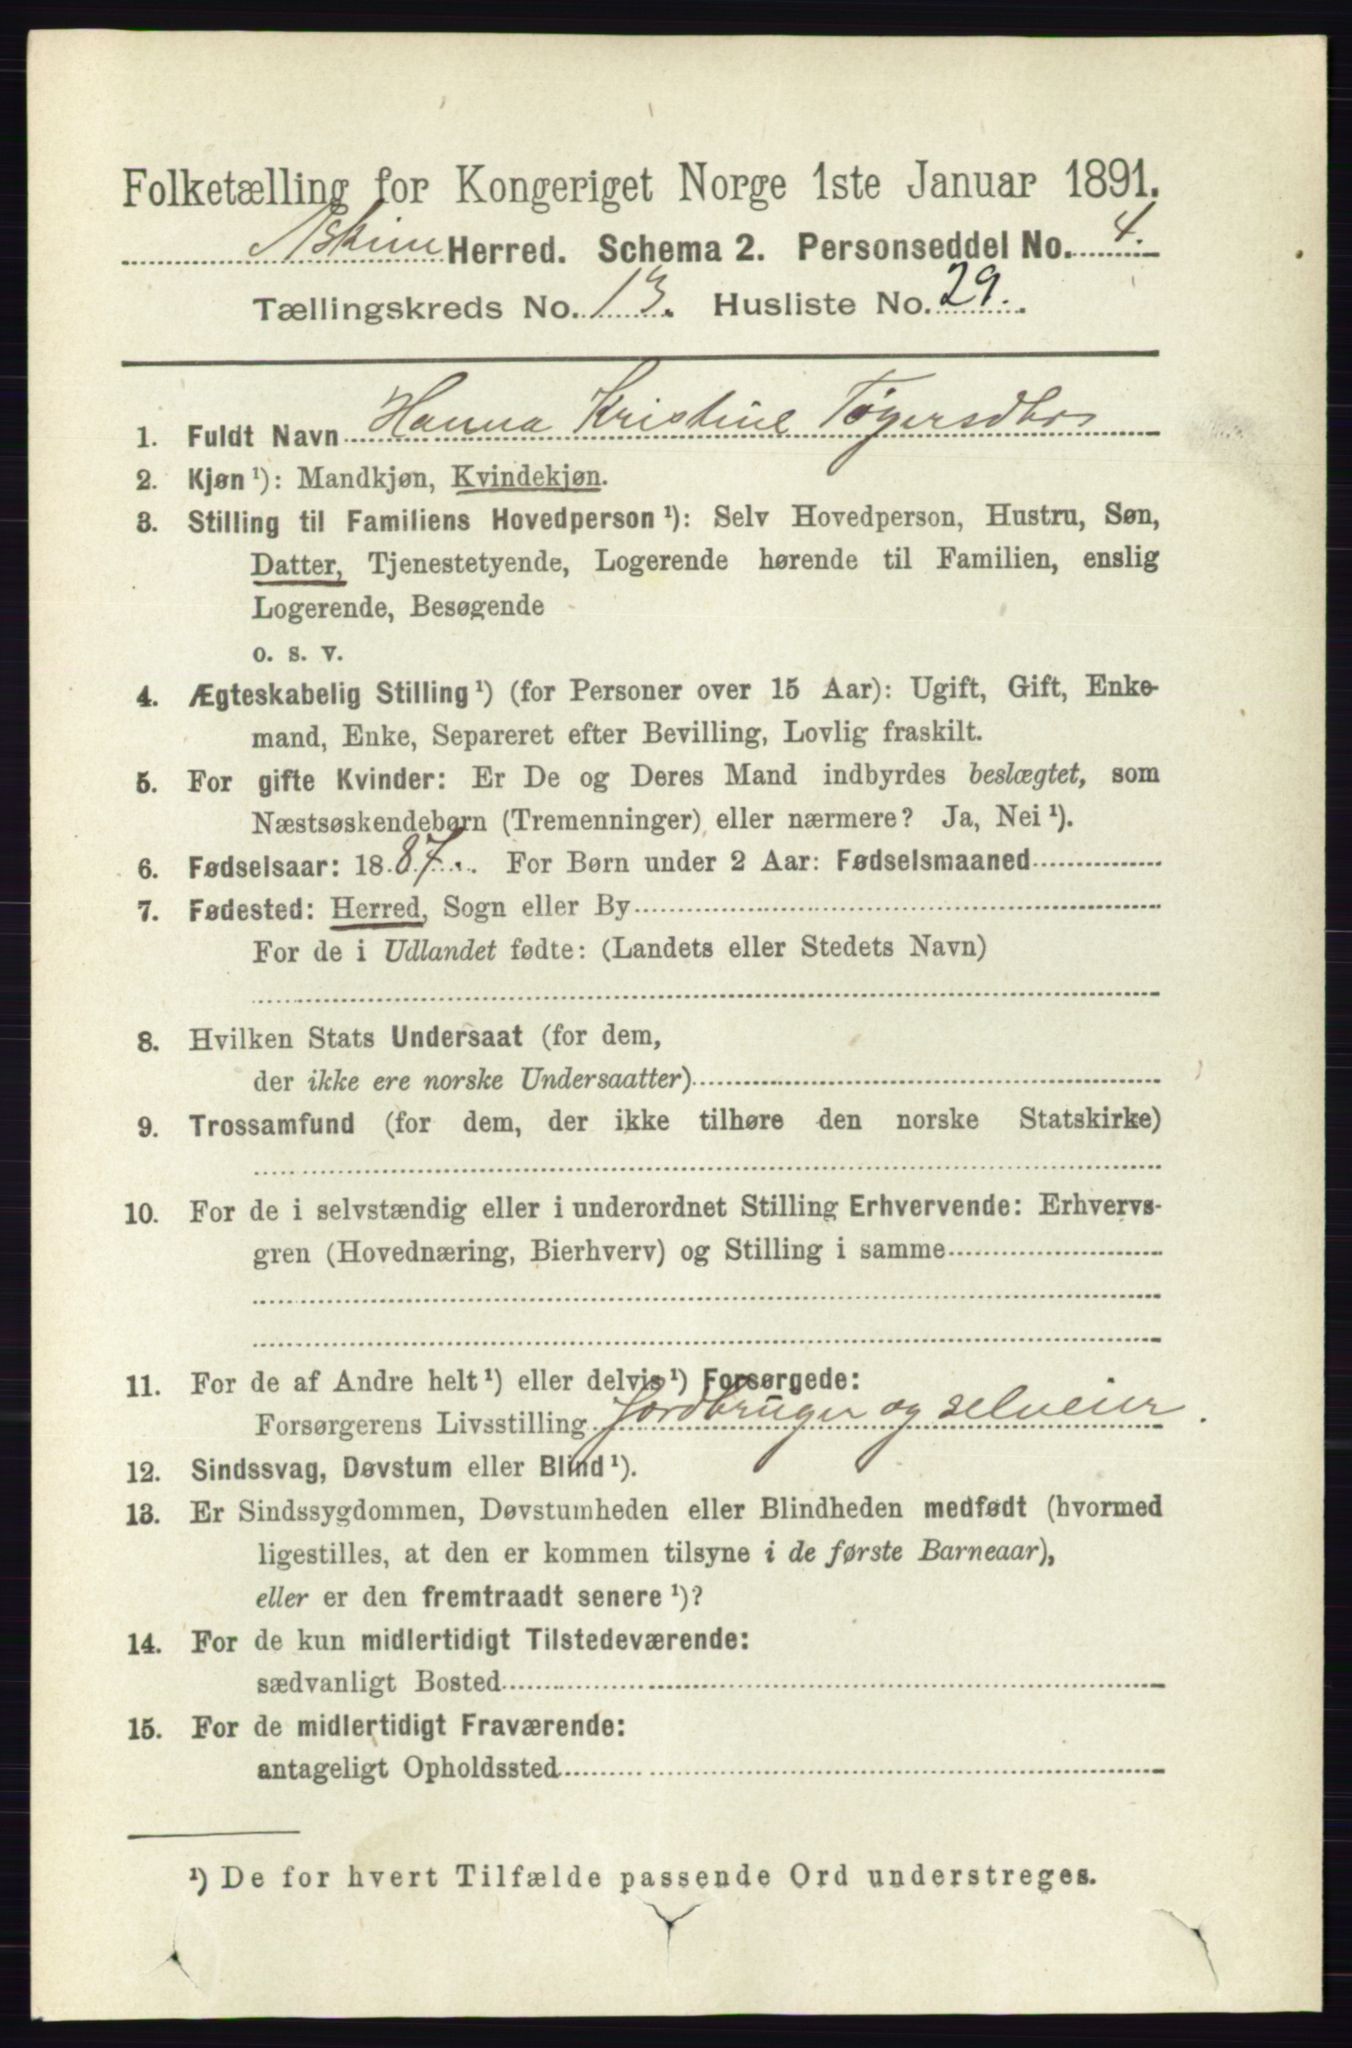 Folketælling for Kongeriget Norge 1ste Januar 1891.
Askim Herred. Schema 2. Personseddel No. 4.
Tællingskreds No. 13. Husliste No. 29.
1. Fuldt Navn Hanna Kristine Tøgersdtr
2. Kjøn ¹): Mandkjøn, Kvindekjøn.
3. Stilling til Familiens Hovedperson ¹): Selv Hovedperson, Hustru, Søn,
Datter, Tjenestetyende, Logerende hørende til Familien, enslig
Logerende, Besøgende
o. s. v.
4. Ægteskabelig Stilling ¹) (for Personer over 15 Aar): Ugift, Gift, Enke-
mand, Enke, Separeret efter Bevilling, Lovlig fraskilt.
5. For gifte Kvinder: Er De og Deres Mand indbyrdes beslægtet, som
Næstsøskendebørn (Tremenninger) eller nærmere? Ja, Nei ¹).
6. Fødselsaar: 1887. For Børn under 2 Aar: Fødselsmaaned
7. Fødested: Herred, Sogn eller By
For de i Udlandet fødte: (Landets eller Stedets Navn)
8. Hvilken Stats Undersaat (for dem,
der ikke ere norske Undersaatter)
9. Trossamfund (for dem, der ikke tilhøre den norske Statskirke)
10. For de i selvstændig eller i underordnet Stilling Erhvervende: Erhvervs-
gren (Hovednæring, Bierhverv) og Stilling i samme
11. For de af Andre helt ¹) eller delvis ¹) Forsørgede:
Forsørgerens Livsstilling Jordbruger og selveier.
12. Sindssvag, Døvstum eller Blind ¹).
13. Er Sindssygdommen, Døvstumheden eller Blindheden medfødt (hvormed
ligestilles, at den er kommen tilsyne i de første Barneaar),
eller er den fremtraadt senere ¹)?
14. For de kun midlertidigt Tilstedeværende:
sædvanligt Bosted
15. For de midlertidigt Fraværende:
antageligt Opholdssted
¹) De for hvert Tilfælde passende Ord understreges.